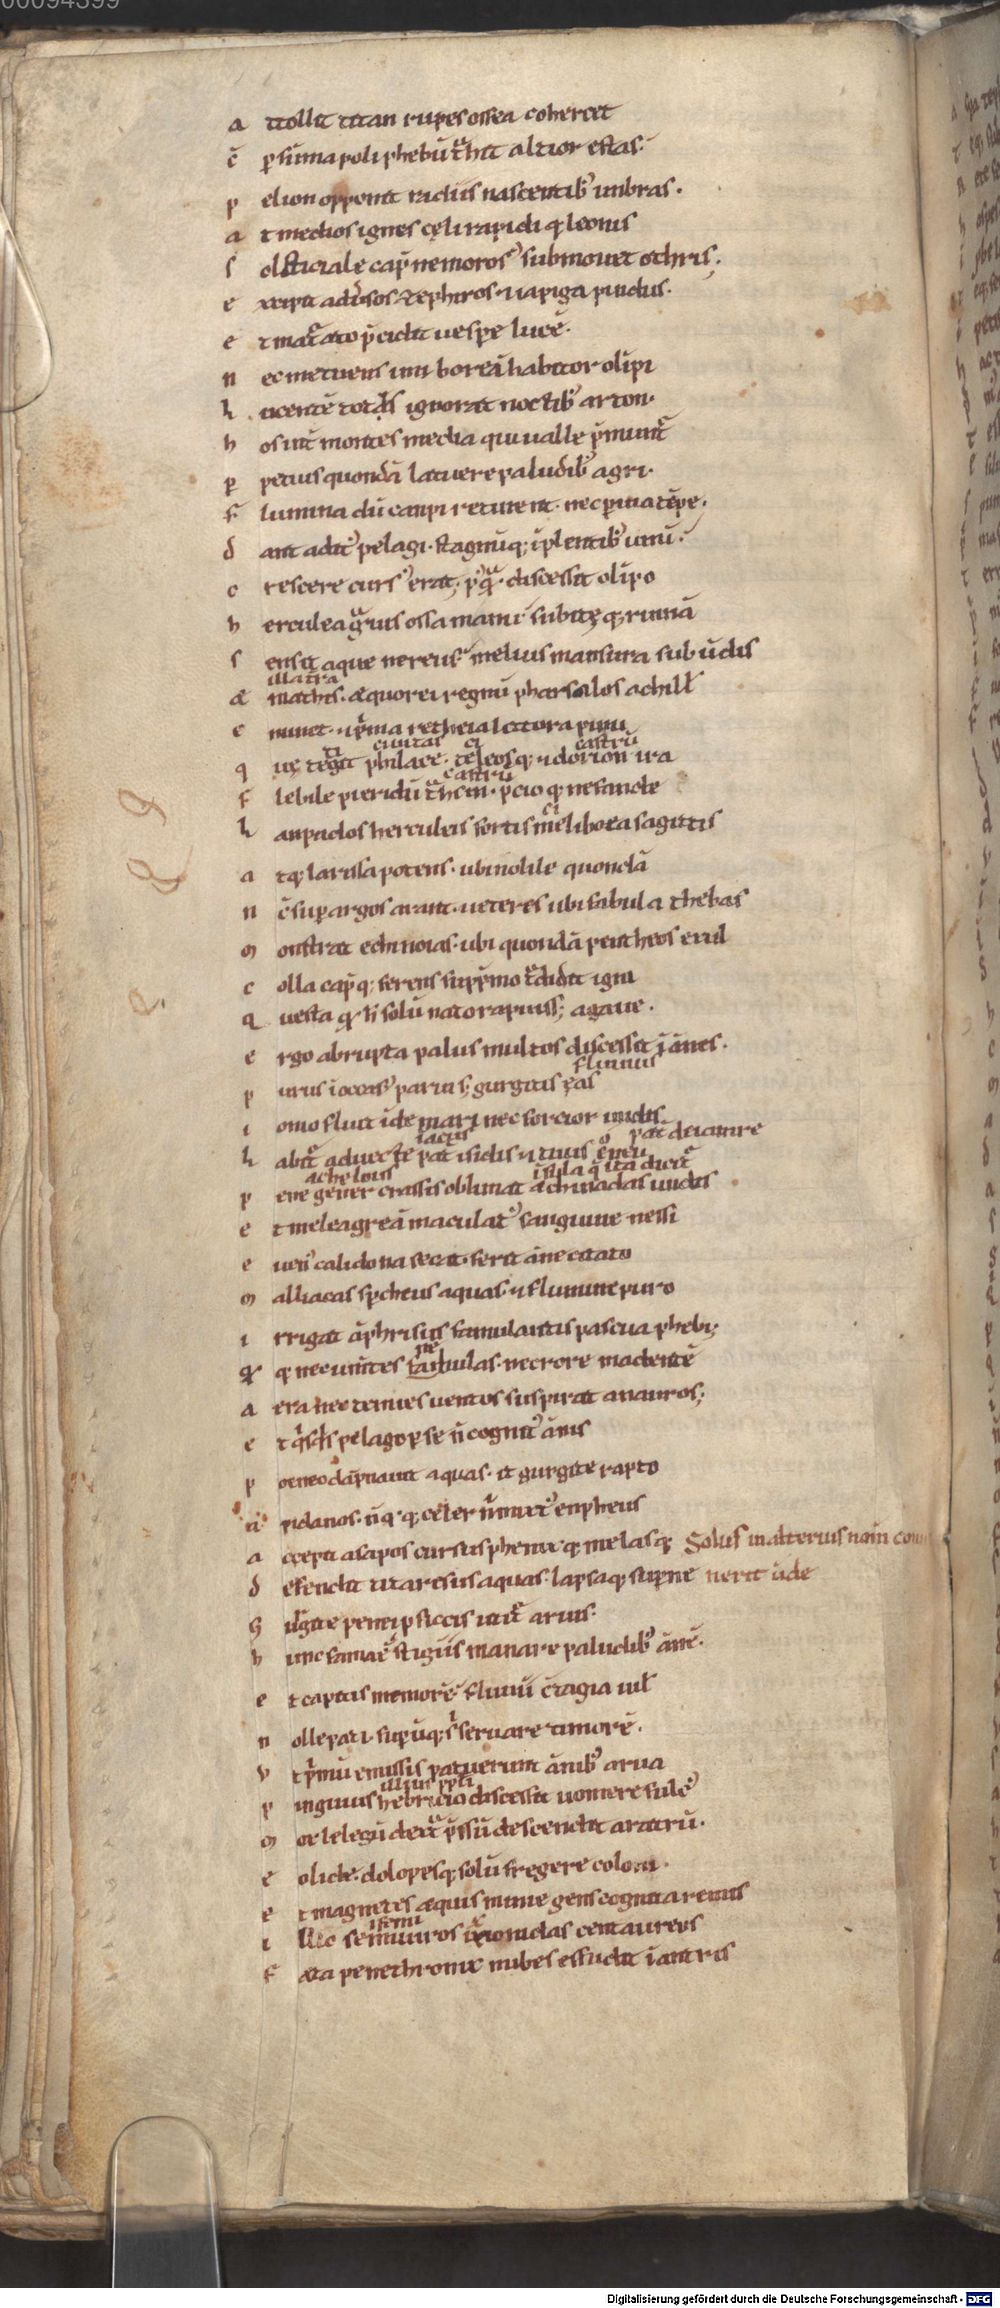 00094399
a ttollit titan rupes ossea cohercet
c̄ p sūma poli phebū thit altior estas·
p elion opponit radiis nascentib; umbras·
a t medios ignes cęli rapidi q; leonis
s olsticiale cap̄ nemoros' submouet othris·
e xcipit aduersos zephiros· ⁊ iapiga pindus·
e t maturato p̄cidit uespe lucē·
n ec metuens imi boreā habitator olīpi
l ucentē totis ignorat noctib; arton·
h os int̄ montes media qui ualle p̄munt̄
p petuis quondā latuere paludib; agri·
f lumina dū canpi retinent· nec puia tēpe·
d ant adit' pelagi· stagnūq; īplentib; unū·
c rescere curs' erat· p̄q̄· discessit olīpo
h erculea g̃uis ossa manu· subitęq; ruinā
s ensit aque nereus· melius mansura sub ūdis
illatra
æ mathis· æquorei regnū pharsalos achill̄
e minet· ⁊ p̄ma retheia littora pinu
ti ciuitas ci castrū
q uę tegit philace· teleosq; ⁊ dorion ira
castrū
f lebile pieridū thcin· p̄cio q; nefande
ci
l anpados herculeis fortis melibora sagittis
a tq; larissa potens· ubi nobile quondā
n c̄ sup argos arant· ueteres ubi fabula thebas
m onstrat echinoias· ubi quondā pentheos exul
c olla cap̄q; ferens supp̄mo t̄didit igni
q uesta q; h̄ solū nato rapuiss; agaue·
e rgo abrupta palus multos discessit ī ānes·
fluuius
p urus ī occas' parui s; gurgitis ęas
i onio fluit īde mari nec forcior undis
iactis pat̄ deianire
l abit̄ aduectę pat̄ isidis ⁊ tuus eneu
achelous īsula q̄ ita dicit̄
p ene gener crassis oblimat echinadas undis
e t meleagreā maculat' sanguine nessi
e uen' calidona secat· ferit āne citato
m alliacas spcheus aquas· ⁊ flumine puro
i rrigat āphrisius famulantis pascua phebi;
ne
q q; nec umētes nabulas· nec rore madentē
a era nec tenues uentos suspirat anauros;
e t q̄sq̄s pelago p se n̄ cognit' ānis
p oeneo dāpnauit aquas· it gurgite rapto
a pidanos· nūq; q; celer n̄mixt' enpheus
a ccepit asapos cursus phenix q; melas q; Solus in alterius nom̄ com
d efendit titaresus aquas· lapsaq; supne nerit ūde
g urgite penei p siccis utit̄ aruis·
h unc fama ē stigiis manare paludib; ānē·
e t capitis memorē· fluuiū c̄tagia uil̄
n olle pati· supūq; s̄ seruare timorē·
v t p̄mū emissis patuerunt ānib; arua
illius ppl̄i
p inguius hebricio discessit uomere sulc'
m oc lelegū dext̄ p̄ssū descendit aratrū·
e olide· dolopesq; solū fregere coloni·
e t magnetes æquis mime gens cognita remis
ifemi
i llic semiuiros ixionidas centauros
f ęta penethroniis nubes effudit ī antris
Digitalisierung gefördert durch die Deutsche Forschungsgemeinschaft - DFG